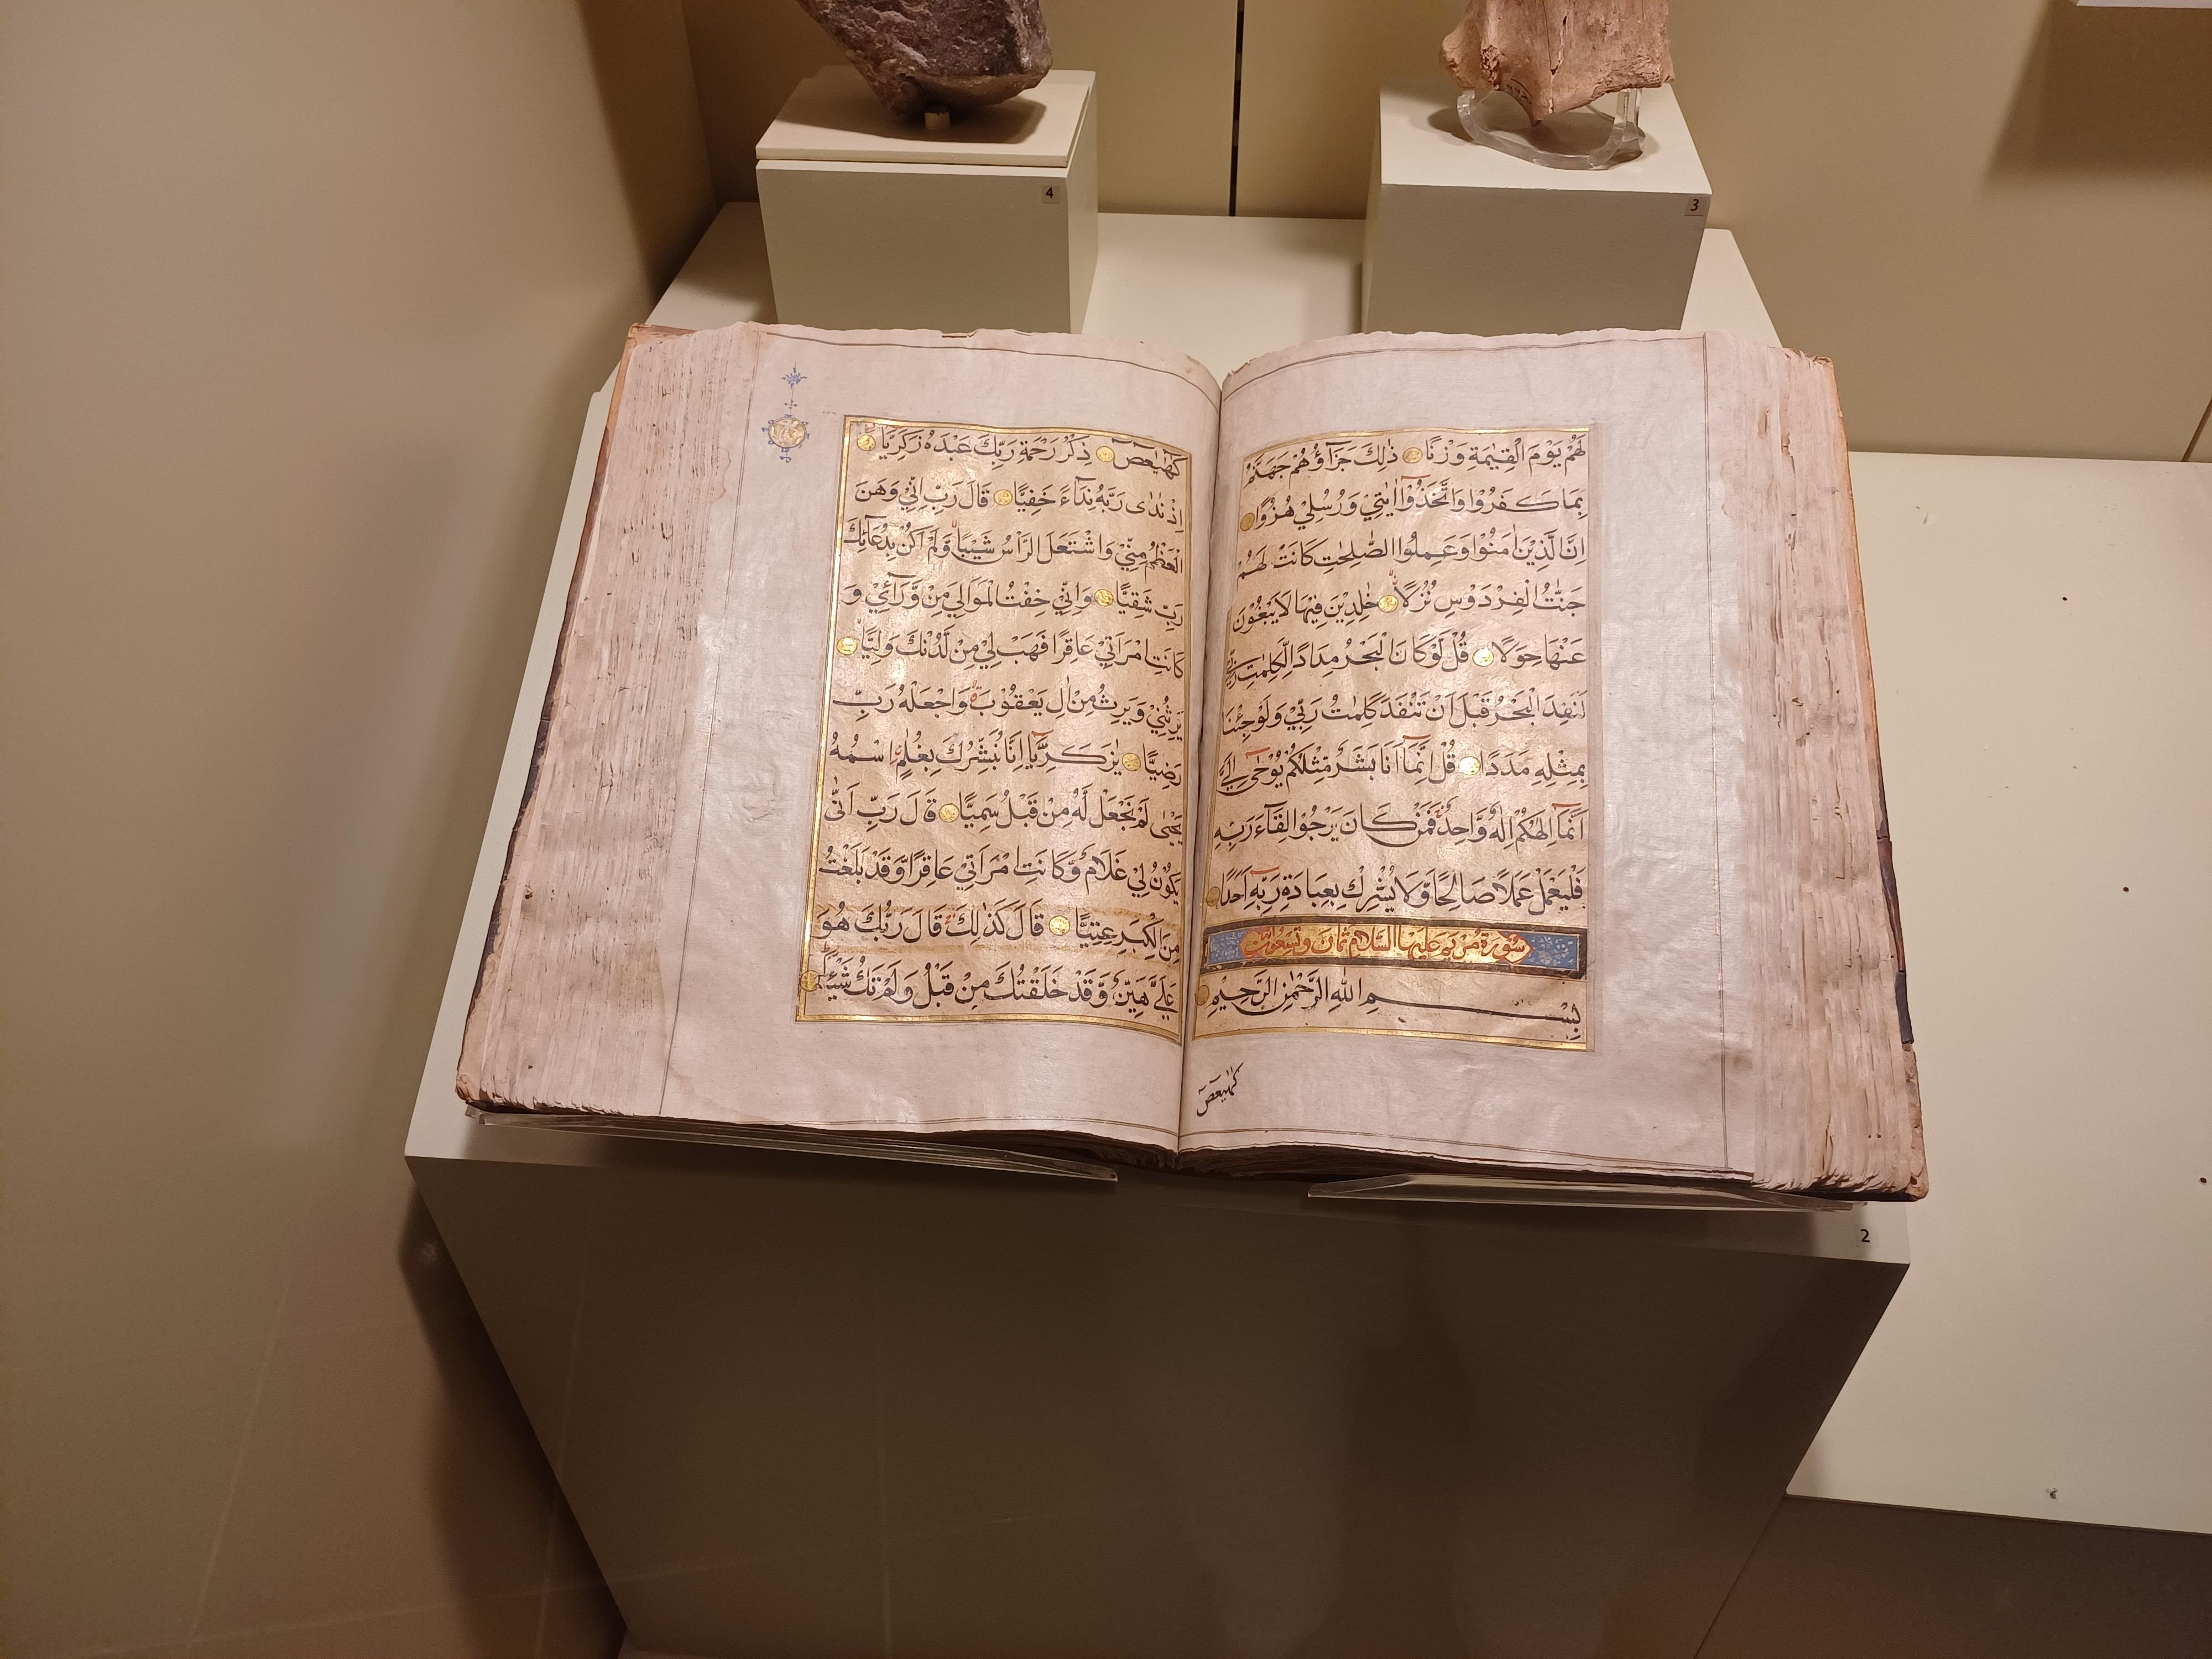 4
3
لَهُمْ يَوْمَ الْقِيٰمَةِ وَزْنًا ذٰلِكَ جَزَآؤُهُمْ جَهَنَّمُ
بِمَا كَفَرُوْا وَاتَّخَذُوْٓا اٰيٰتِيْ وَرُسُلِيْ هُزُوًا
اِنَّ الَّذِيْنَ اٰمَنُوْا وَعَمِلُوا الصّٰلِحٰتِ كَانَتْ لَهُمْ
جَنّٰتُ الْفِرْدَوْسِ نُزُلًا خٰلِدِيْنَ فِيْهَا لَا يَبْغُوْنَ
عَنْهَا حِوَلًا قُلْ لَوْ كَانَ الْبَحْرُ مِدَادًا لِّكَلِمٰتِ رَبِّيْ
لَنَفِدَ الْبَحْرُ قَبْلَ اَنْ تَنْفَدَ كَلِمٰتُ رَبِّيْ وَلَوْ جِئْنَا
بِمِثْلِهٖ مَدَدًا قُلْ اِنَّمَآ اَنَا بَشَرٌ مِّثْلُكُمْ يُوْحٰٓى اِلَيَّ
اَنَّمَآ اِلٰهُكُمْ اِلٰهٌ وَّاحِدٌ فَمَنْ كَانَ يَرْجُوْا لِقَآءَ رَبِّهٖ
فَلْيَعْمَلْ عَمَلًا صَالِحًا وَّلَا يُشْرِكْ بِعِبَادَةِ رَبِّهٖٓ اَحَدًا
سورة مريم عليها السلام ثمان وتسعون
بِسْمِ اللّٰهِ الرَّحْمٰنِ الرَّحِيْمِ
كهيعص
كهيعص ذِكْرُ رَحْمَةِ رَبِّكَ عَبْدَهٗ زَكَرِيَّا
اِذْ نَادٰى رَبَّهٗ نِدَآءً خَفِيًّا قَالَ رَبِّ اِنِّيْ وَهَنَ
الْعَظْمُ مِنِّيْ وَاشْتَعَلَ الرَّاْسُ شَيْبًا وَّلَمْ اَكُنْ بِدُعَآئِكَ
رَبِّ شَقِيًّا وَاِنِّيْ خِفْتُ الْمَوَالِيَ مِنْ وَّرَآئِيْ وَ
كَانَتِ امْرَاَتِيْ عَاقِرًا فَهَبْ لِيْ مِنْ لَّدُنْكَ وَلِيًّا
يَّرِثُنِيْ وَيَرِثُ مِنْ اٰلِ يَعْقُوْبَ وَاجْعَلْهُ رَبِّ
رَضِيًّا يٰزَكَرِيَّآ اِنَّا نُبَشِّرُكَ بِغُلٰمٍ اسْمُهٗ
يَحْيٰى لَمْ نَجْعَلْ لَّهٗ مِنْ قَبْلُ سَمِيًّا قَالَ رَبِّ اَنّٰى
يَكُوْنُ لِيْ غُلَامٌ وَّكَانَتِ امْرَاَتِيْ عَاقِرًا وَّقَدْ بَلَغْتُ
مِنَ الْكِبَرِ عِتِيًّا قَالَ كَذٰلِكَ قَالَ رَبُّكَ هُوَ
عَلَيَّ هَيِّنٌ وَّقَدْ خَلَقْتُكَ مِنْ قَبْلُ وَلَمْ تَكُ شَيْـًٔا
2